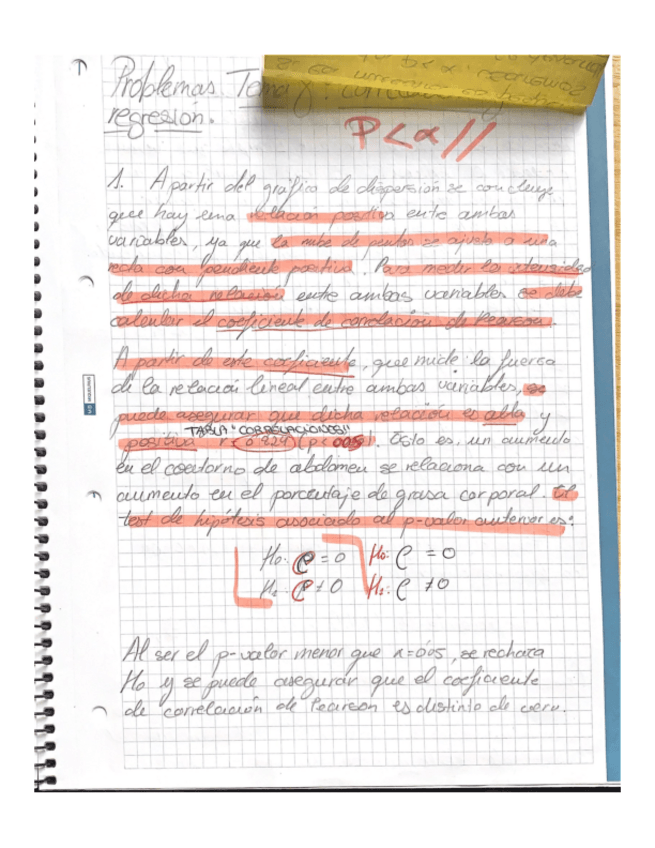 Problemas Tema 8: correlación
regresión.
P<α//
1. A partir del gráfico de dispersión se concluye
que hay una relación positiva entre ambas
variables, ya que la nube de puntos se ajusta a una
recta con pendiente positiva. Para medir la intensidad
de dicha relación entre ambas variables se debe
calcular el coeficiente de correlación de Pearson.
A partir de este coeficiente, que mide la fuerza
de la relación lineal entre ambas variables, se
puede asegurar que dicha relación es alta y
TABLA "CORRELACIONES"
positiva r= 0'824 (p< 0'05). Esto es, un aumento
en el contorno de abdomen se relaciona con un
aumento en el porcentaje de grasa corporal. El
test de hipótesis asociado al p-valor anterior es:
H₀: ρ = 0 H₀: ρ = 0
H₁: ρ ≠ 0 H₁: ρ ≠ 0
Al ser el p-valor menor que α=0'05, se rechaza
H₀ y se puede asegurar que el coeficiente
de correlación de Pearson es distinto de cero.